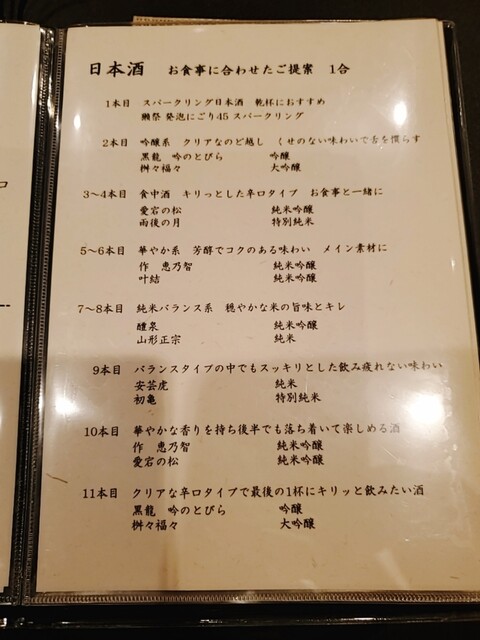 日本酒 お食事に合わせたご提案 1合
1本目 スパークリング日本酒 乾杯におすすめ
獺祭 発泡にごり45 スパークリング
2本目 吟醸系 クリアなのど越し くせのない味わいで舌を慣らす
黒龍 吟のとびら 吟醸
桝々福々 大吟醸
3~4本目 食中酒 キリっとした辛口タイプ お食事と一緒に
愛宕の松 純米吟醸
雨後の月 特別純米
5~6本目 華やか系 芳醇でコクのある味わい メイン素材に
作 恵乃智 純米吟醸
叶結 純米吟醸
7~8本目 純米バランス系 穏やかな米の旨味とキレ
醴泉 純米吟醸
山形正宗 純米
9本目 バランスタイプの中でもスッキリとした飲み疲れない味わい
安芸虎 純米
初亀 特別純米
10本目 華やかな香りを持ち後半でも落ち着いて楽しめる酒
作 恵乃智 純米吟醸
愛宕の松 純米吟醸
11本目 クリアな辛口タイプで最後の1杯にキリッと飲みたい酒
黒龍 吟のとびら 吟醸
桝々福々 大吟醸